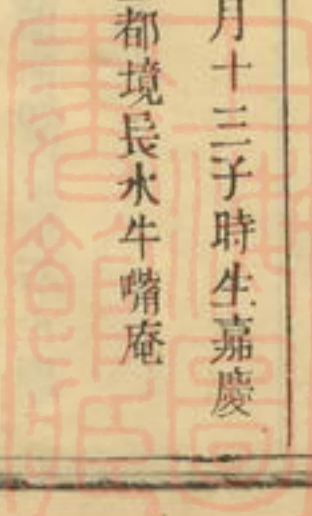 月十三子時生嘉慶
都境長水牛嘴庵